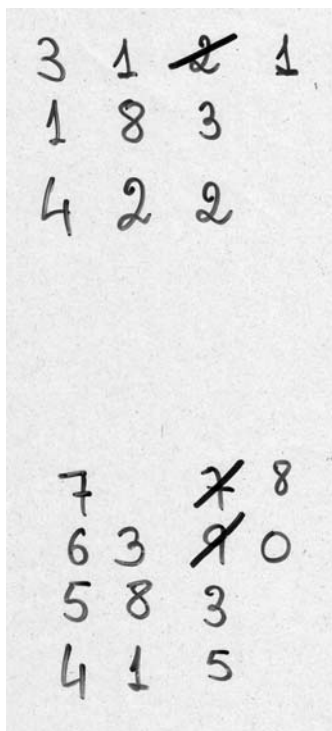 3 1 2 1
1 8 3
4 2 2
7 7 8
6 3 9 0
5 8 3
4 1 5